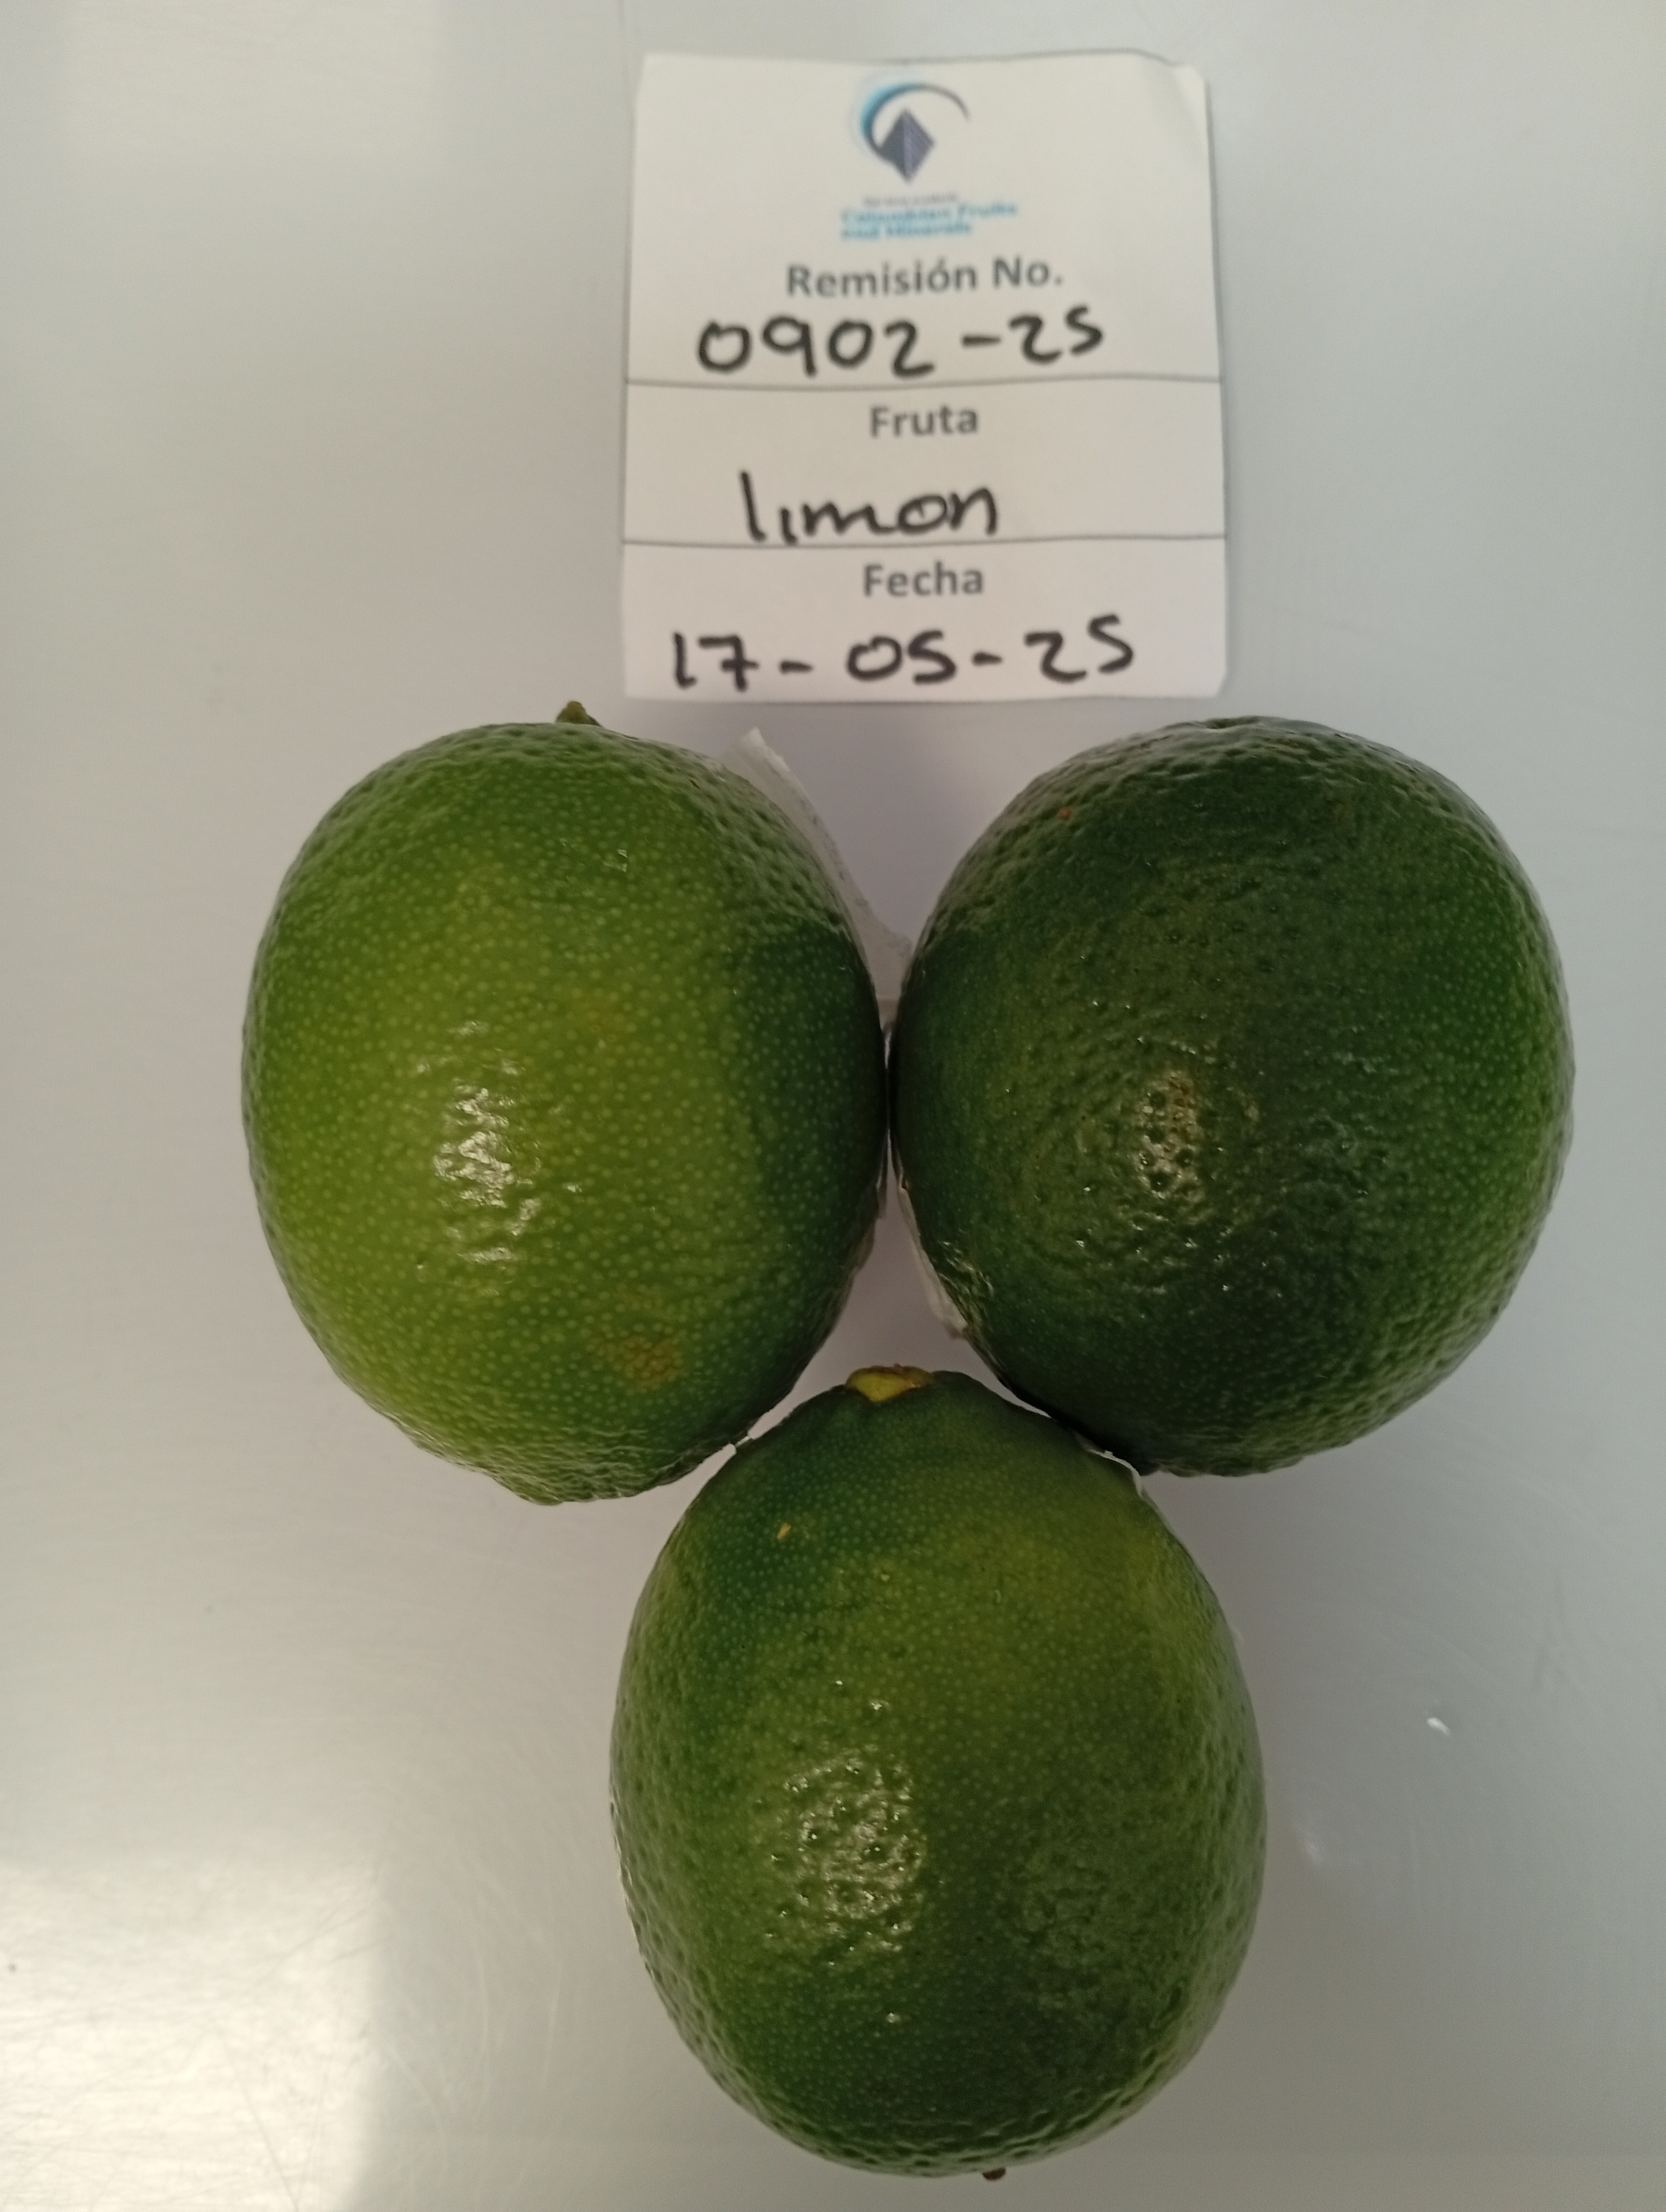 Colombian Fruits
and Minerals
Remisión No.
0902-25
Fruta
limon
Fecha
17-05-25